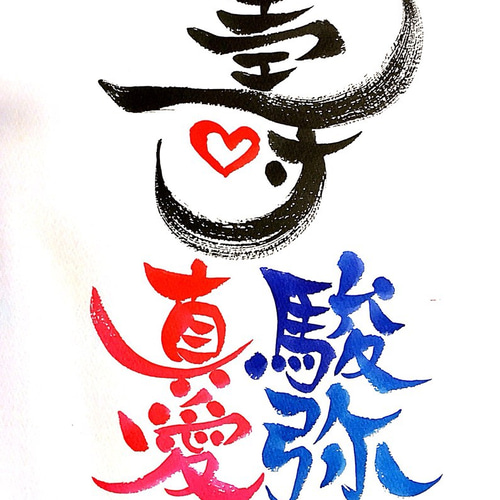 寿
駿弥
真愛